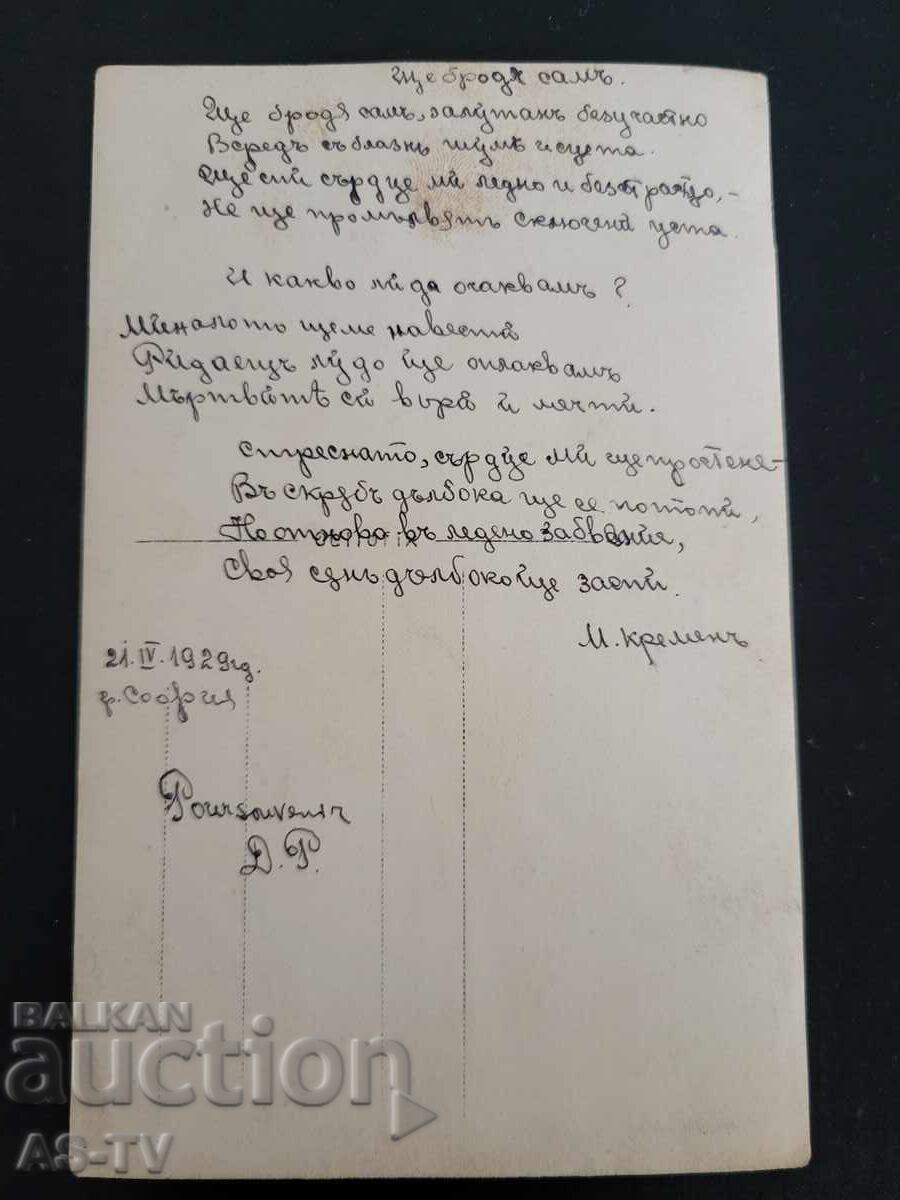 Ще бродя самъ.
Ще бродя самъ, залутанъ безучастно
Всредъ съблазнь шумъ и суета.
Ще спи сърдце ми ледно и безстрастно, –
Не ще промълвятъ сключени уста.
И какво ли да очаквамъ?
Миналото ще ме навести
Ридаещъ лудо ще оплаквамъ
Мъртвитѣ си вѣра и мечти.
Стреснато, сърдце ми ще простене –
Въ скръбь дълбока ще се потопи,
Но отново въ ледено забвения,
Своя сънь дълбоко ще заспи.
М. Кременъ
21.IV.1929 год.
гр. София
Pour souvenir
Д. Р.
BALKAN
auction
AS-TV